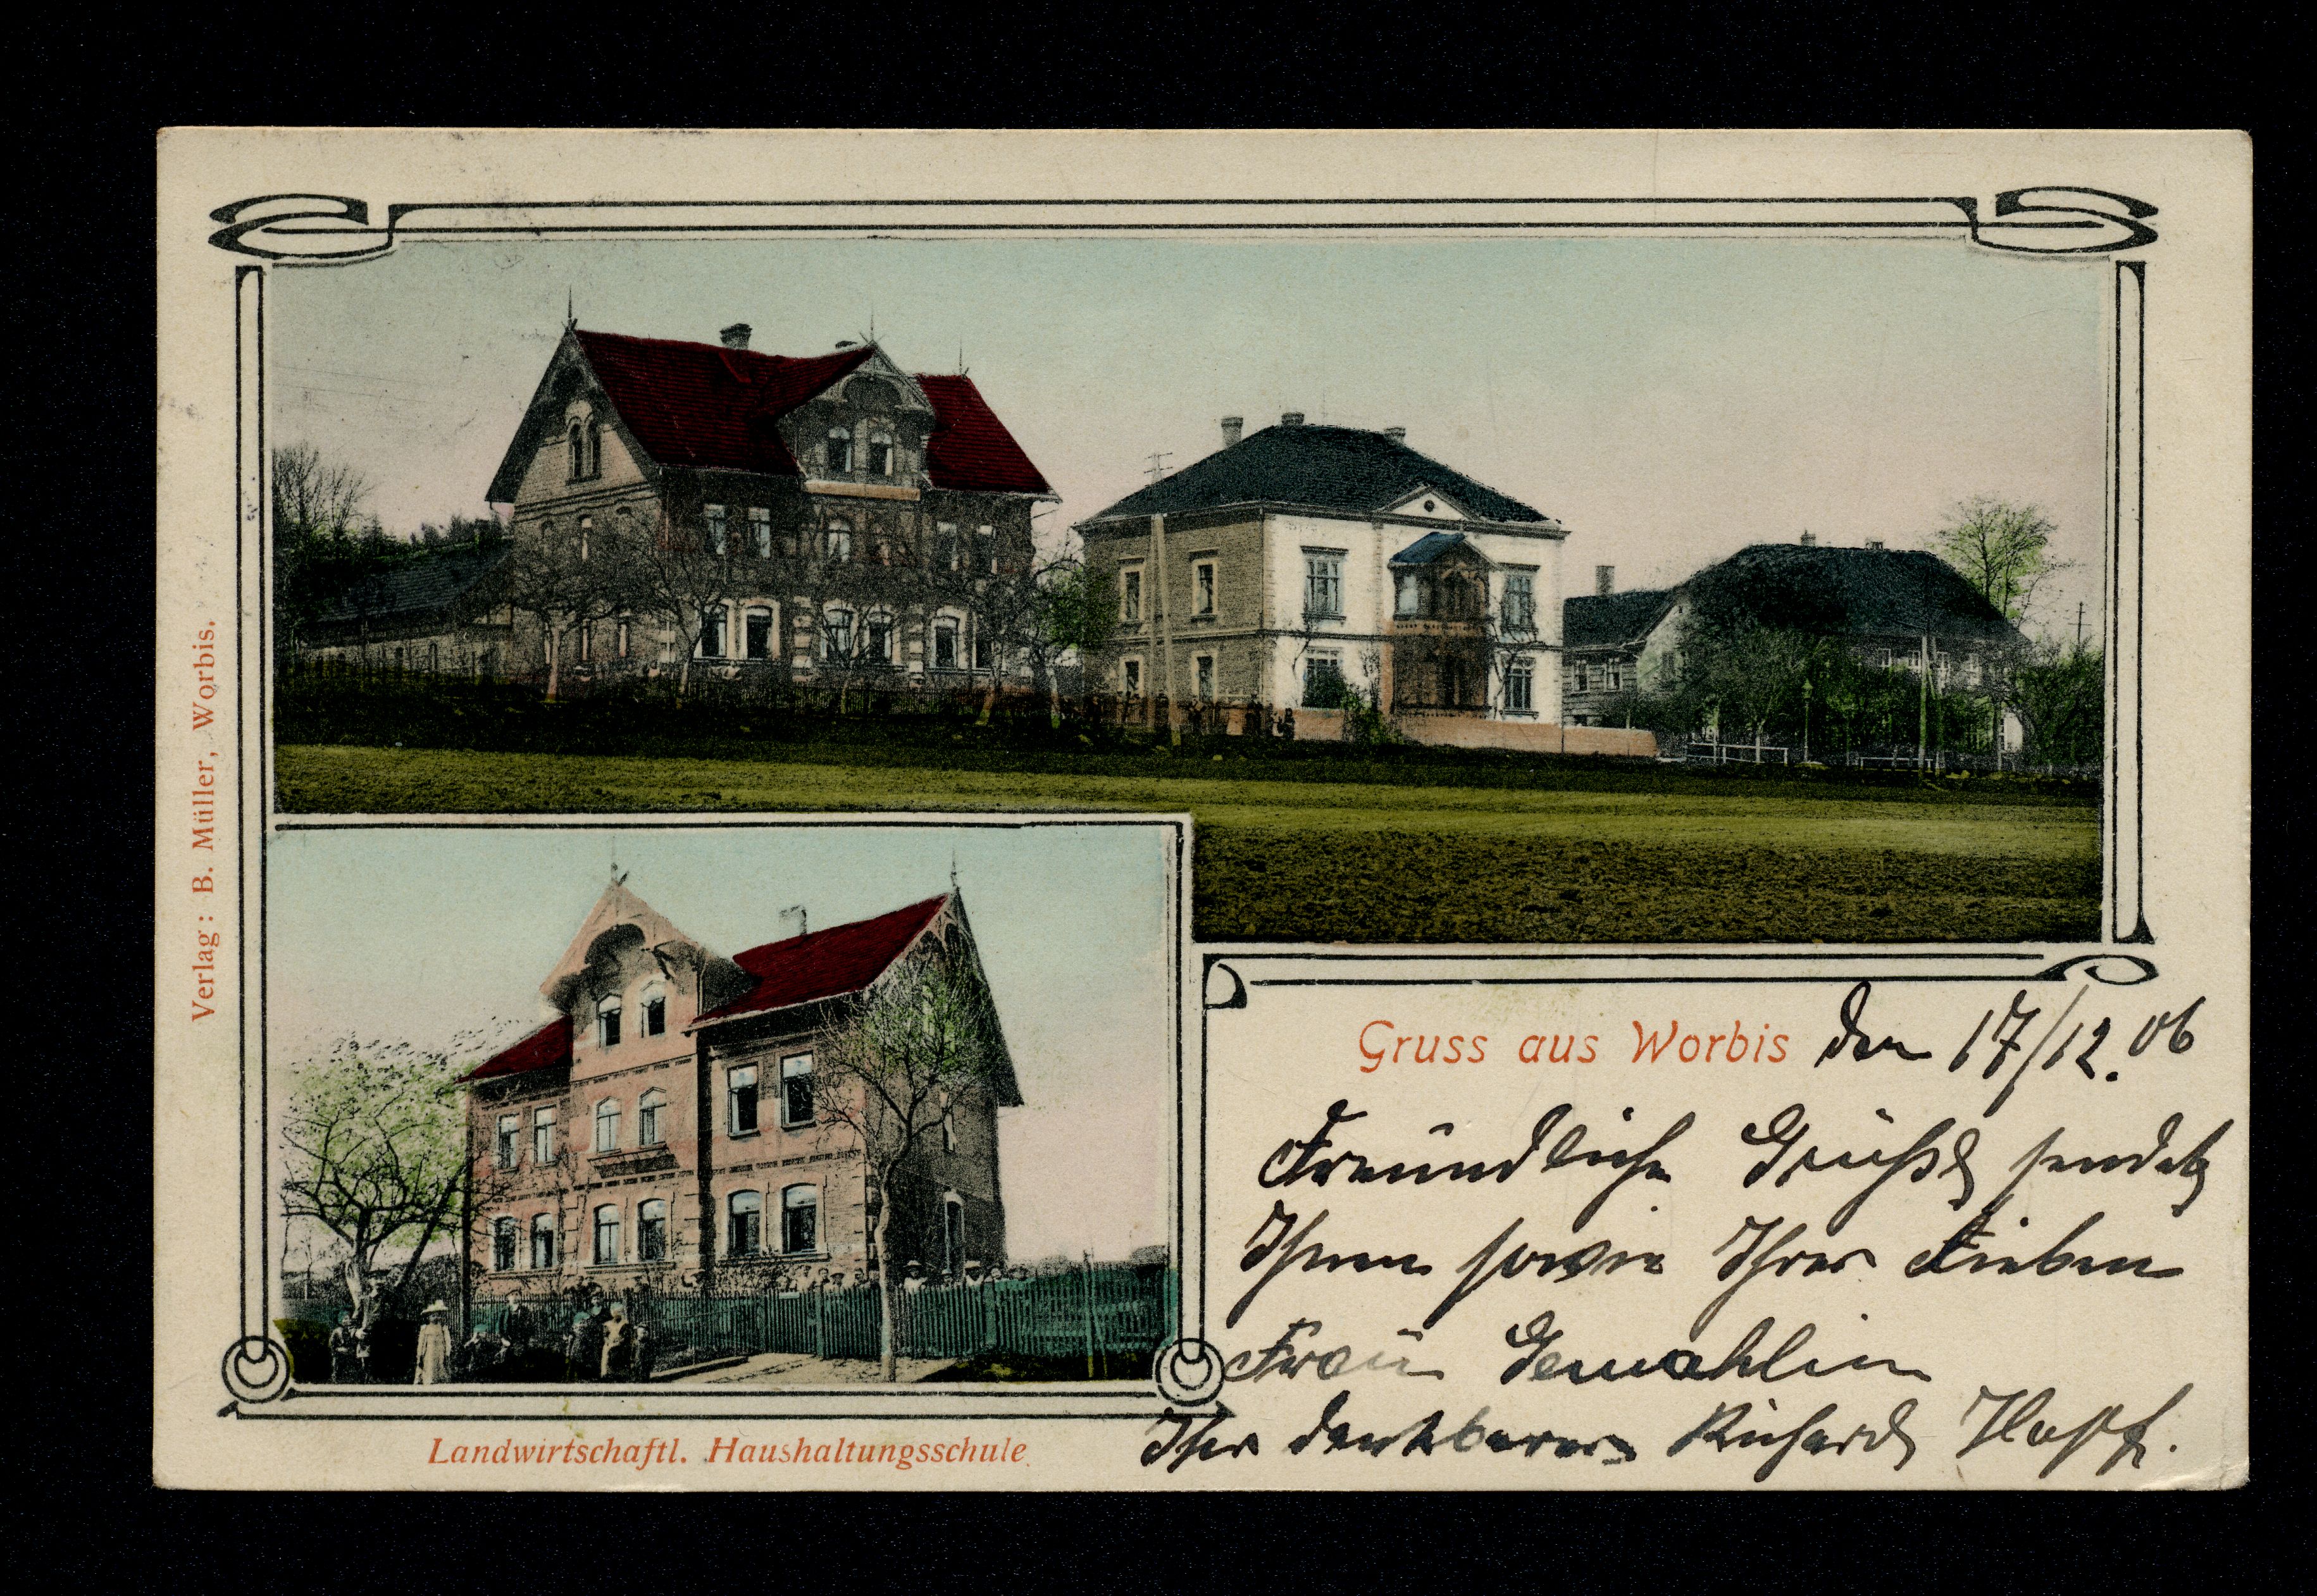 Verlag: B. Müller, Worbis.
Gruss aus Worbis den 17/12. 06
Freundliche Grüße sendet
Ihnen sowie Ihrer Lieben
Frau Gemahlin
Ihr dankbarer Richard
Landwirtschaftl. Haushaltungsschule